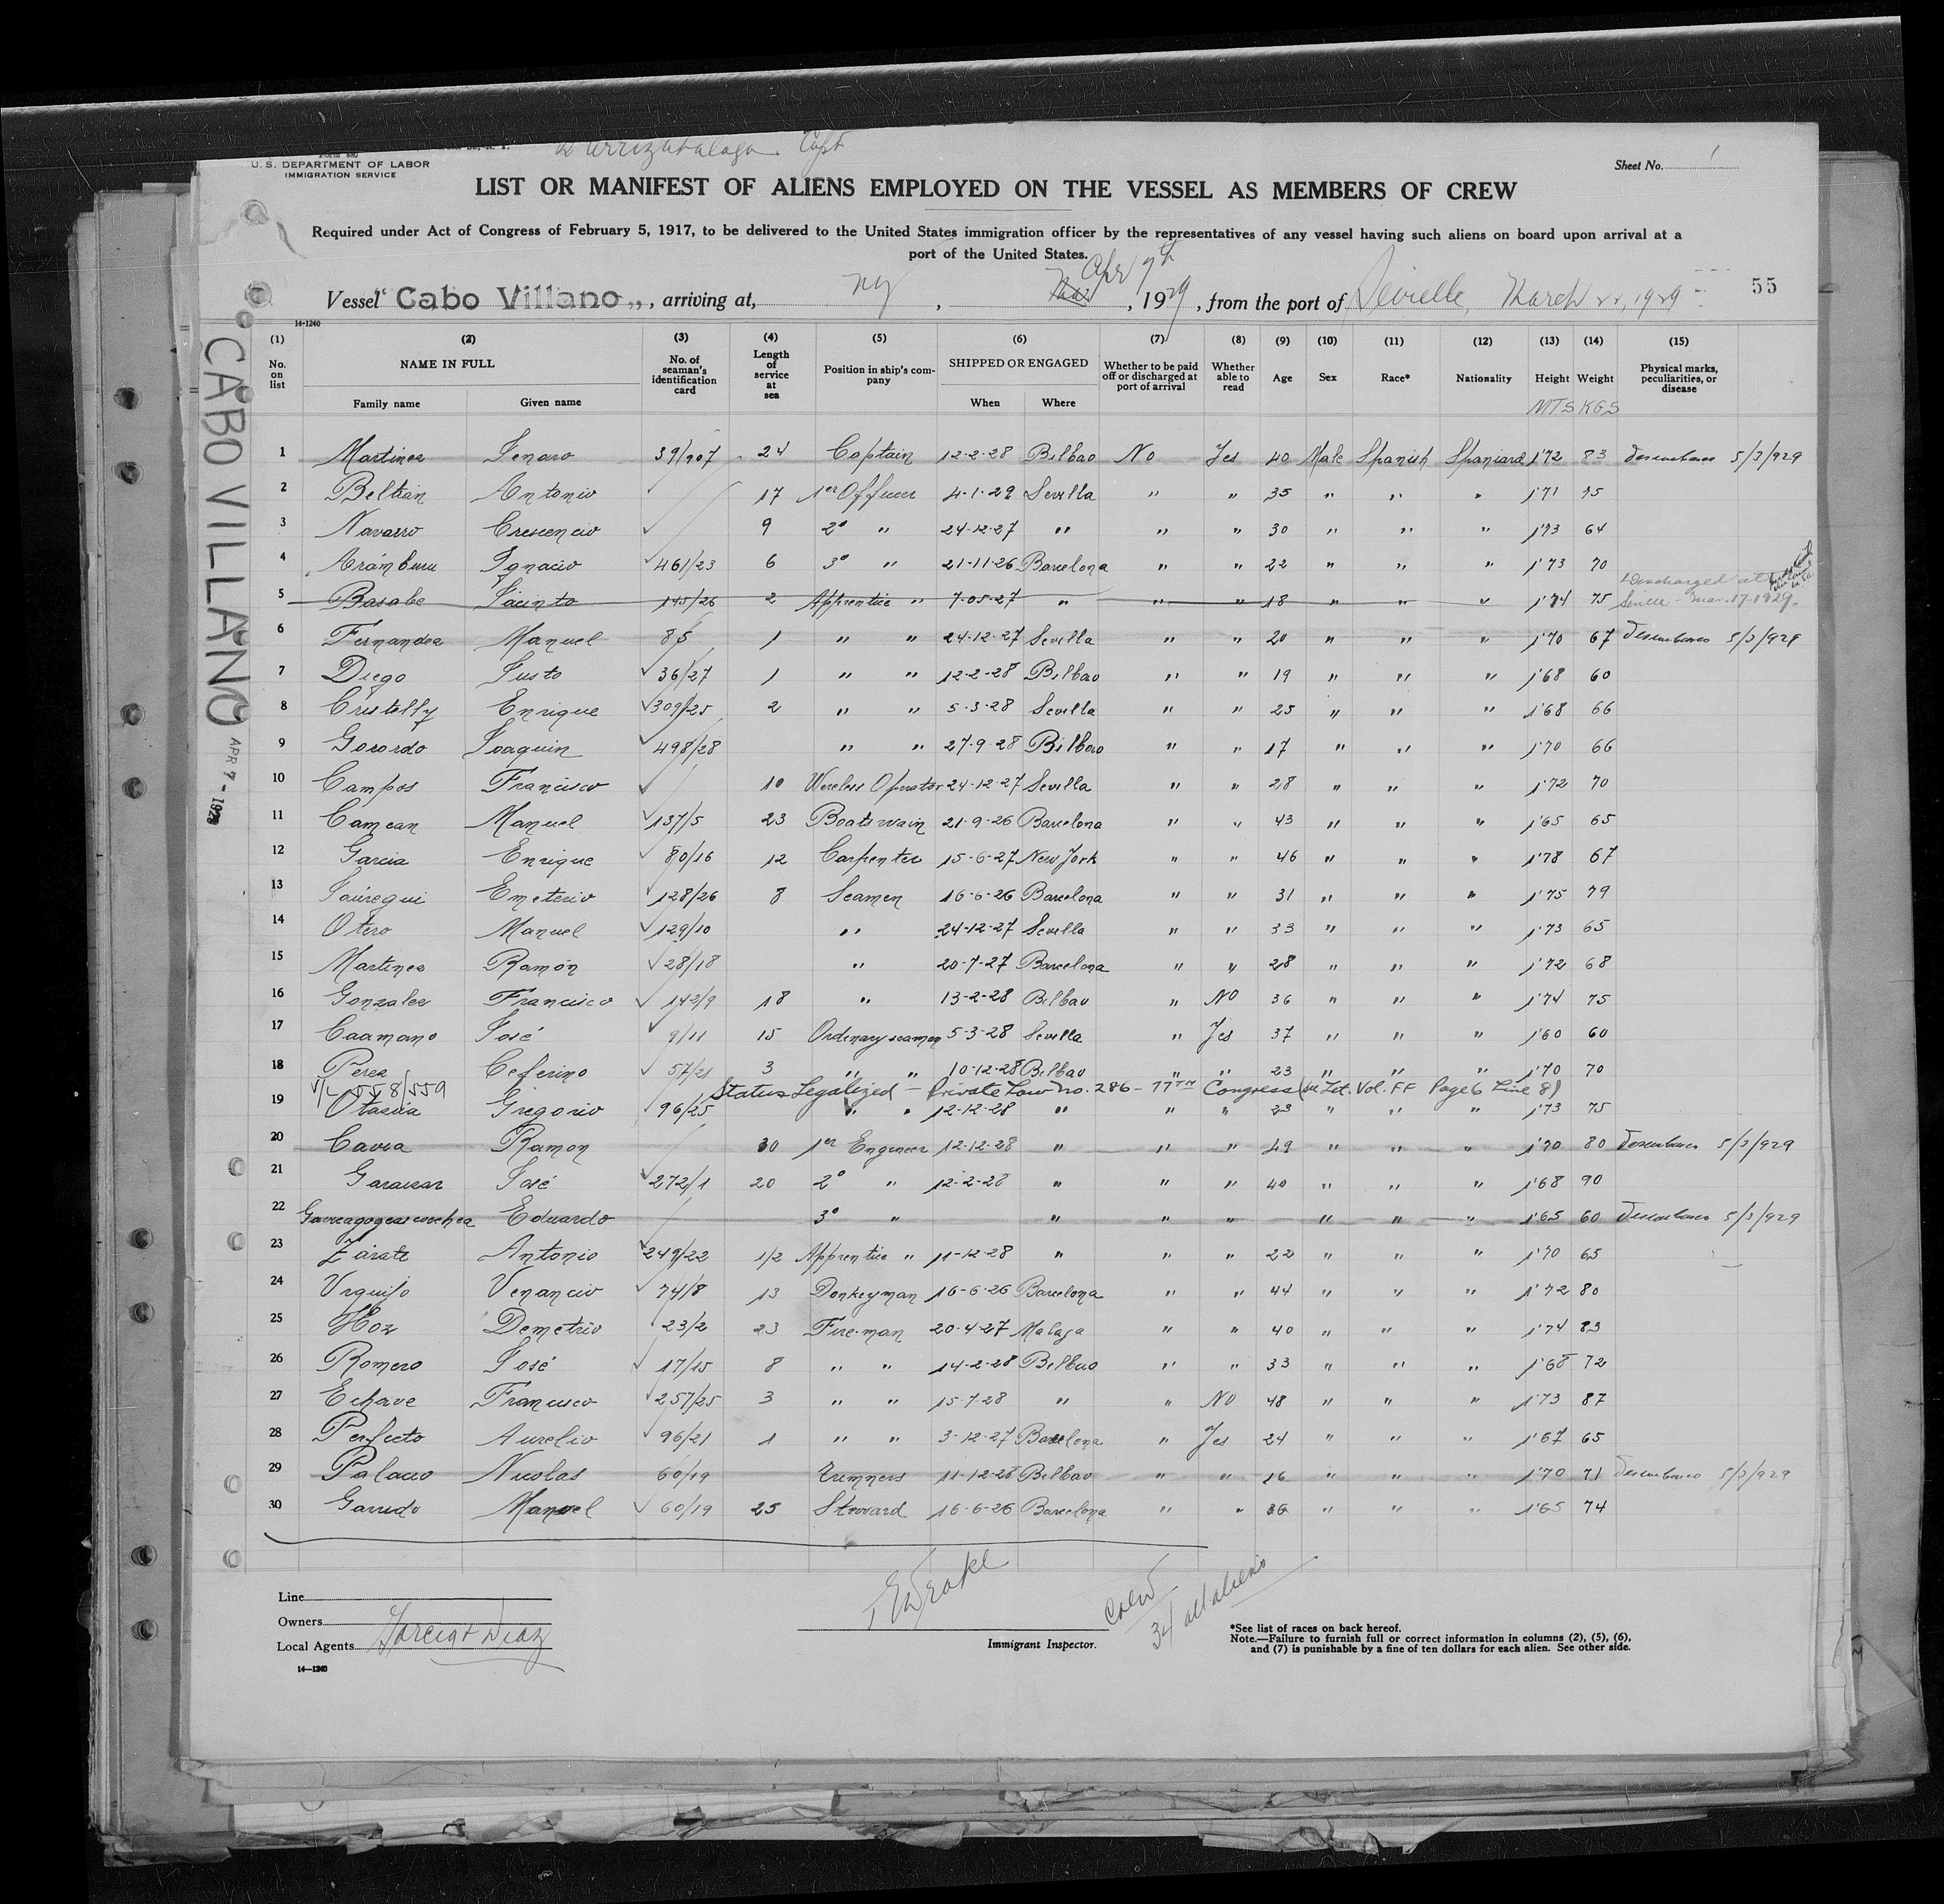 L Urrizabalaga Capt
Form 680
U. S. DEPARTMENT OF LABOR
IMMIGRATION SERVICE
Sheet No. 1
LIST OR MANIFEST OF ALIENS EMPLOYED ON THE VESSEL AS MEMBERS OF CREW
Required under Act of Congress of February 5, 1917, to be delivered to the United States immigration officer by the representatives of any vessel having such aliens on board upon arrival at a
port of the United States.
Vessel "Cabo Villano", arriving at, NY, Mar Apr 7th, 1929, from the port of Sevielle, March 22, 1929 55
14-1240
CABO VILLANO APR 7 - 1929
(1) (2) (3) (4) (5) (6) (7) (8) (9) (10) (11) (12) (13) (14) (15)
No. on list NAME IN FULL No. of seaman's identification card Length of service at sea Position in ship's company SHIPPED OR ENGAGED Whether to be paid off or discharged at port of arrival Whether able to read Age Sex Race* Nationality Height Weight Physical marks, peculiarities, or disease
Family name Given name When Where MTS KGS
1 Martinez Jenaro 39/907 24 Captain 12-2-28 Bilbao No Yes 40 Male Spanish Spaniard 1'72 83 Desembarco 5/3/929
2 Beltran Antonio 17 1er Officer 4-1-29 Sevilla " " 35 " " " 1'71 75
3 Navarro Crescencio 9 2º " 24-12-27 " " " 30 " " " 1'73 64
4 Aramburu Ignacio 461/23 6 3º " 21-11-26 Barcelona " " 22 " " " 1'73 70
5 Basabe Jacinto 145/26 2 Apprentice " 7-05-27 " " " 18 " " " 1'74 75 Discharged at Seville Mar. 17-1929.
6 Fernandez Manuel 85 1 " " 24-12-27 Sevilla " " 20 " " " 1'70 67 Desembarco 5/3/929
7 Diego Justo 36/27 1 " " 12-2-28 Bilbao " " 19 " " " 1'68 60
8 Cristelly Enrique 309/25 2 " " 5-3-28 Sevilla " " 25 " " " 1'68 66
9 Gorordo Joaquin 498/28 " " 27-9-28 Bilbao " " 17 " " " 1'70 66
10 Campos Francisco 10 Wireless Operator 24-12-27 Sevilla " " 28 " " " 1'72 70
11 Camean Manuel 137/5 23 Boatswain 21-9-26 Barcelona " " 43 " " " 1'65 65
12 Garcia Enrique 80/16 12 Carpenter 15-6-27 New York " " 46 " " " 1'78 67
13 Jauregui Emeterio 128/26 8 Seamen 16-6-26 Barcelona " " 31 " " " 1'75 79
14 Otero Manuel 129/10 " 24-12-27 Sevilla " " 33 " " " 1'73 65
15 Martinez Ramón 28/18 " 20-7-27 Barcelona " " 28 " " " 1'72 68
16 Gonzalez Francisco 142/9 18 " 13-2-28 Bilbao " NO 36 " " " 1'74 75
17 Caamano José 9/11 15 Ordinary seamen 5-3-28 Sevilla " Yes 37 " " " 1'60 60
18 Perez Ceferino 57/21 3 " " 10-12-28 Bilbao " " 23 " " " 1'70 70
V/L 558/559 Status Legalized - Private Law no. 286 - 77TH Congress (see Let. Vol. FF Page 6 Line 8)
19 Otaola Gregorio 96/25 " " 12-12-28 " " " 23 " " " 1'73 75
20 Cavia Ramon 30 1er Engineer 12-12-28 " " " 49 " " " 1'70 80 Desembarco 5/3/929
21 Garaizar José 272/1 20 2º " 12-2-28 " " " 40 " " " 1'68 90
22 Eduardo 3º " " " " " " " 1'65 60 Desembarco 5/3/929
23 Zárate Antonio 249/22 1/2 Apprentice " 11-12-28 " " " 22 " " " 1'70 65
24 Urquijo Venancio 74/8 13 Donkeyman 16-6-26 Barcelona " " 44 " " " 1'72 80
25 Hoz Demetrio 23/2 23 Fire-man 20-4-27 Malaga " " 40 " " " 1'74 83
26 Romero José 17/15 8 " " 14-2-28 Bilbao " " 33 " " " 1'68 72
27 Echave Francisco 257/25 3 " " 15-7-28 " " NO 48 " " " 1'73 87
28 Perfecto Aurelio 96/21 1 " " 3-12-27 Barcelona " Yes 24 " " " 1'67 65
29 Palacio Nicolas 60/19 Trimners 11-12-28 Bilbao " " 16 " " " 1'70 71 Desembarco 5/3/929
30 Garrido Manuel 60/19 25 Steward 16-6-26 Barcelona " " 36 " " " 1'65 74
Line
Owners
Local Agents Garcia & Diaz
14-1240
Immigrant Inspector.
Crew
34 all aliens
*See list of races on back hereof.
Note.—Failure to furnish full or correct information in columns (2), (5), (6),
and (7) is punishable by a fine of ten dollars for each alien. See other side.